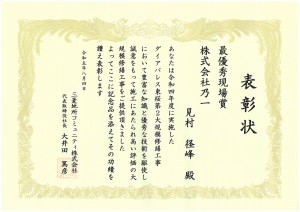 表彰状
最優秀現場賞
株式会社乃一
見村 径峰 殿
あなたは令和四年度に実施した
ダイアパレス東桜第2大規模修繕工事
において豊富な知識と優秀な技術を駆使し
誠意をもって施工にあたられ高い評価の大
規模修繕工事をご提供頂きました
よってここに記念品を添えてその功績を
讃え表彰します
令和五年八月四日
三菱地所コミュニティ株式会社
代表取締役社長 大井田 篤彦